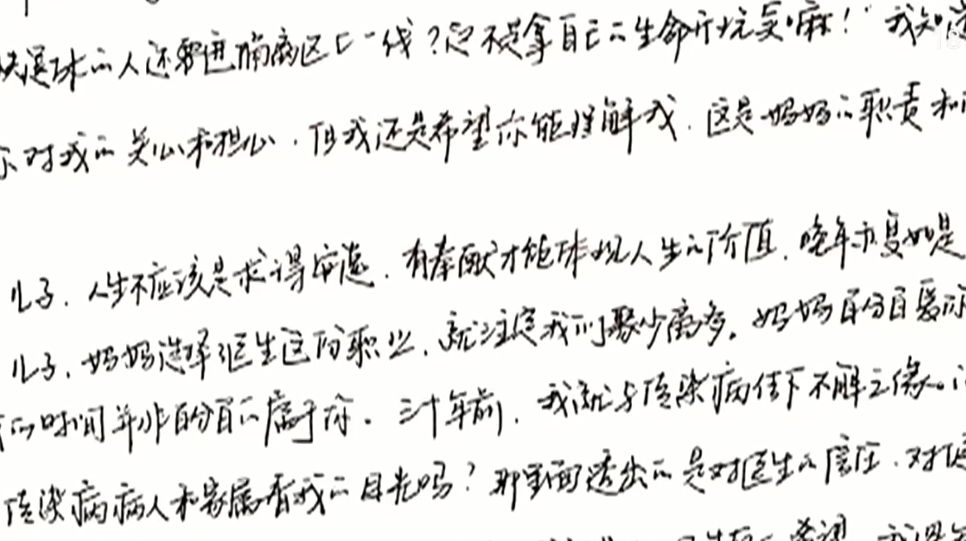 退休的人还要进隔离区上一线？这不是拿自己的生命开玩笑嘛！我知道
你对我的关心和担心，但我还是希望你能理解我，这是妈妈的职责和
儿子，人生不应该是求得安逸，有奉献才能体现人生的价值，晚年亦复如是
儿子，妈妈选择医生这份职业，就注定我们聚少离多。妈妈百分百爱你
的时间并非百分百的属于你。三十年前，我就与传染病结下不解之缘。
传染病病人和家属看我的目光吗？那里面透出的是对医生的信任，对